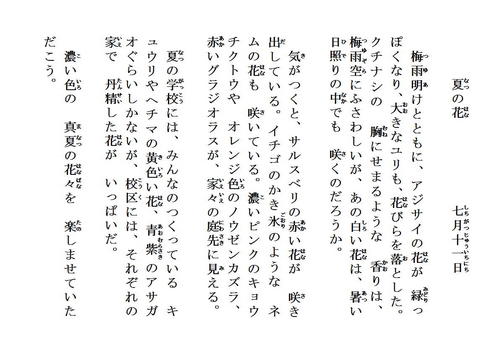 夏の花　七月十一日
梅雨明けとともに、アジサイの花が　緑っ
ぽくなり、大きなユリも、花びらを落とした。
クチナシの　胸にせまるような　香りは、
梅雨空にふさわしいが、あの白い花は、暑い
日照りの中でも　咲くのだろうか。
気がつくと、サルスベリの赤い花が　咲き
出している。イチゴのかき氷のような　ネ
ムの花も　咲いている。濃いピンクのキョウ
チクトウや　オレンジ色のノウゼンカズラ、
赤いグラジオラスが、家々の庭先に見える。
夏の学校には、みんなのつくっている　キ
ュウリやヘチマの黄色い花、青紫のアサガ
オぐらいしかないが、校区には、それぞれの
家で　丹精した花が　いっぱいだ。
濃い色の　真夏の花々を　楽しませていた
だこう。